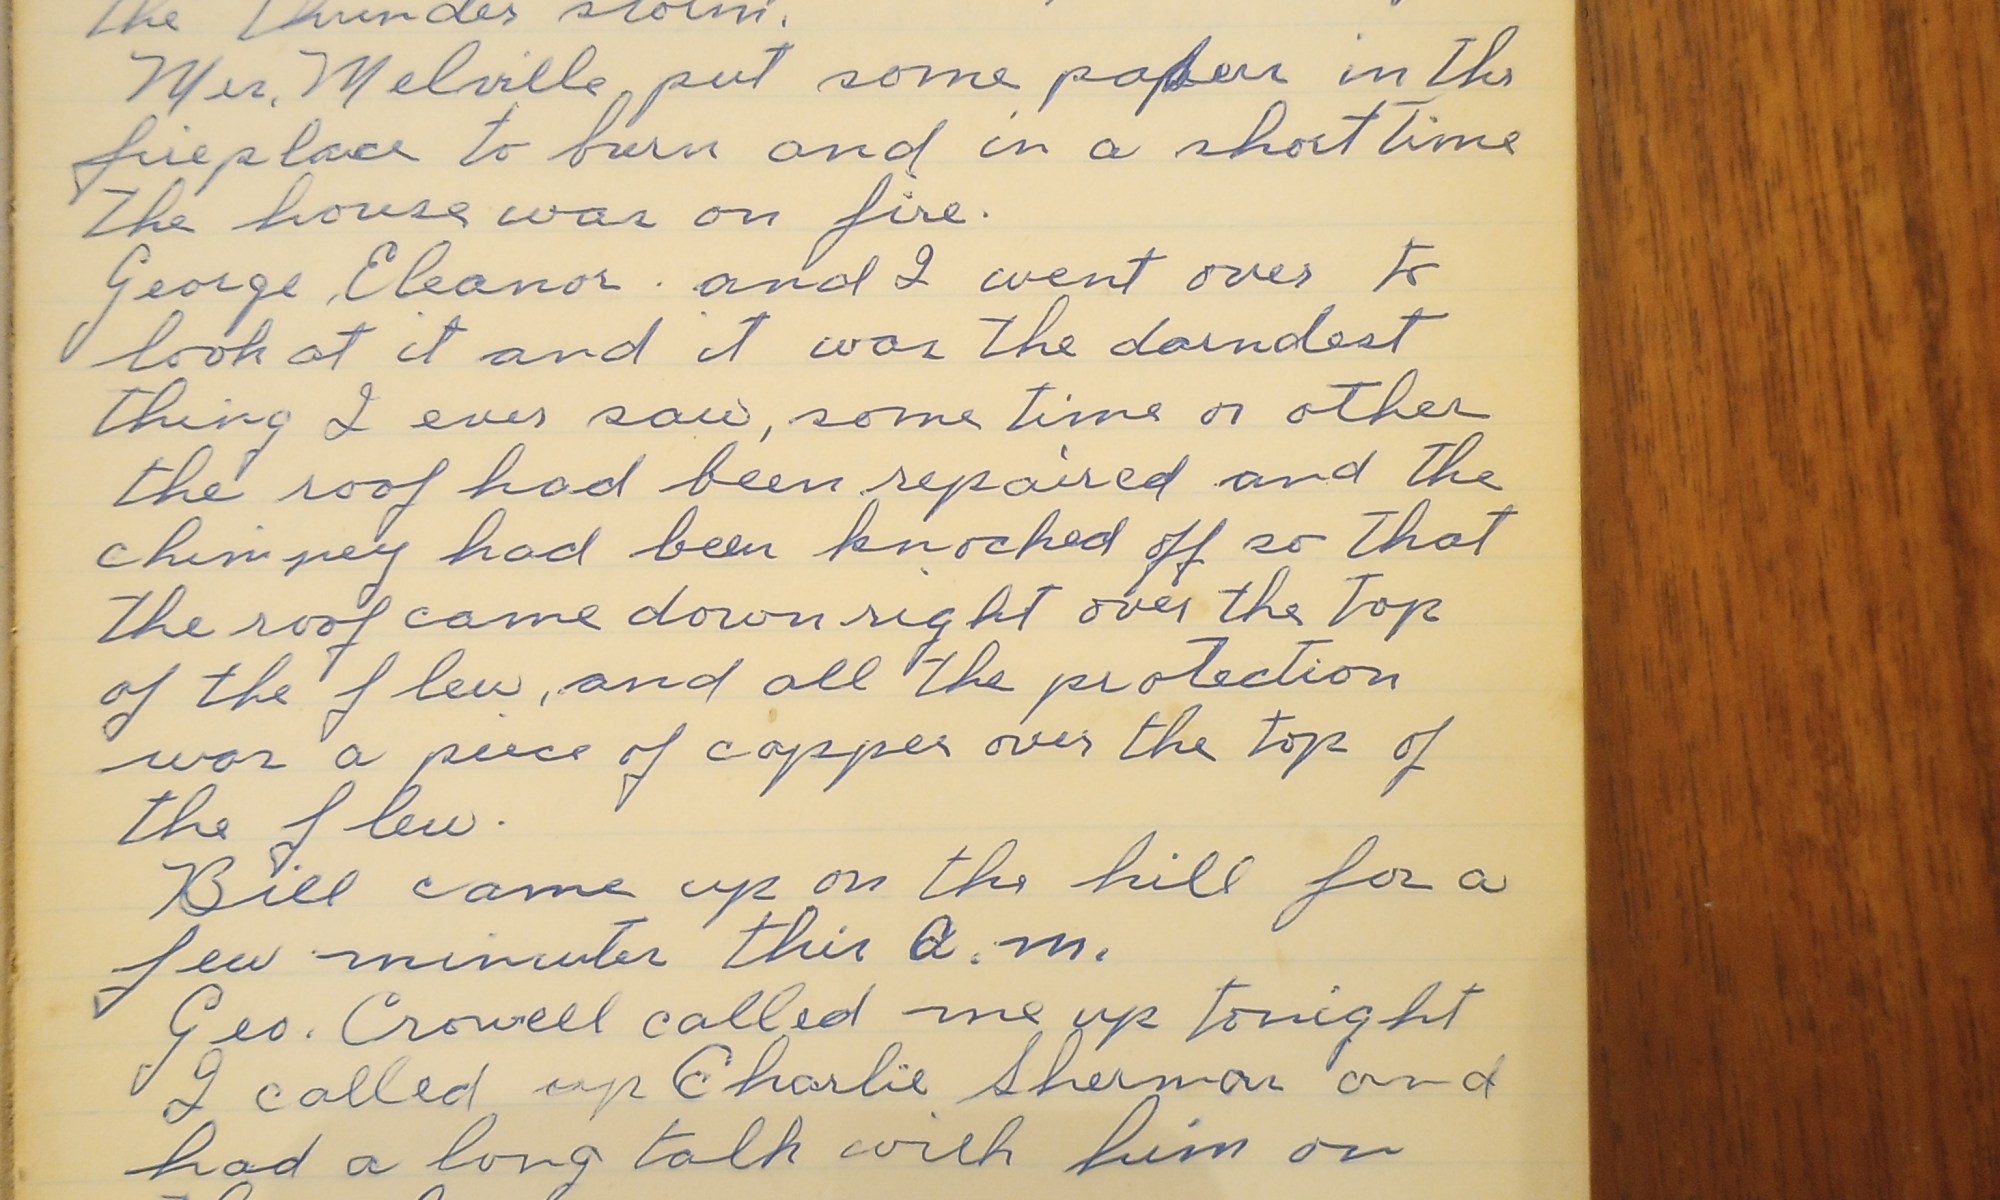 the thunder storm.
Mrs. Melville put some papers in the
fireplace to burn and in a short time
the house was on fire.
George, Eleanor. and I went over to
look at it and it was the darndest
thing I ever saw, some time or other
the roof had been repaired and the
chimney had been knocked off so that
the roof came down right over the top
of the flew, and all the protection
was a piece of copper over the top of
the flew.
Bill came up on the hill for a
few minutes this a.m.
Geo. Crowell called me up tonight
I called up Charlie Sherman and
had a long talk with him on